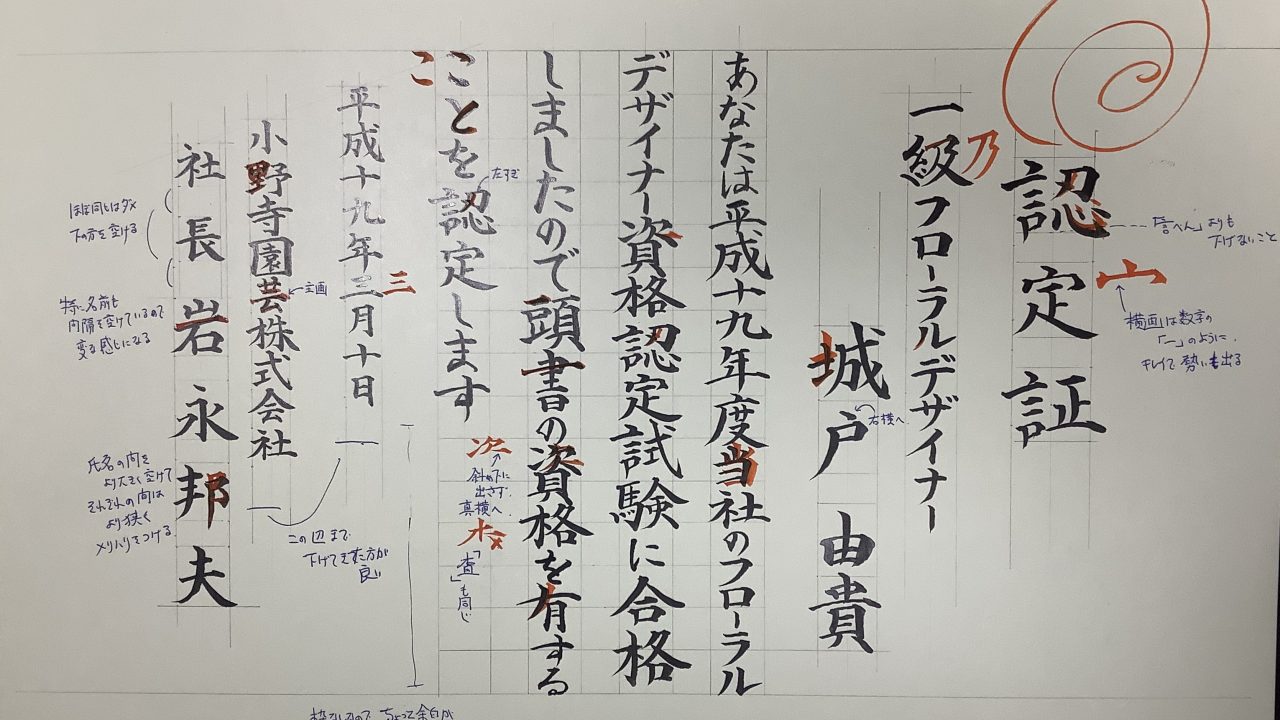 認定証
一級フローラルデザイナー
乃
城戸由貴
あなたは平成十九年度当社のフローラル
デザイナー資格認定試験に合格
しましたので頭書の資格を有する
ことを認定します
こ
平成十九年三月十日
三
小野寺園芸株式会社
社長岩永邦夫
「言へん」よりも
下げないこと
宀
横画は数字の
「一」のように
キレイで勢いも出る
右横へ
左すぎ
次
斜め下に
出さず
真横へ
木
「査」も同じ
主画
この辺まで
下げてきた方が
良い
ほぼ同じはダメ
下の方を空ける
特に名前も
間隔を空けているので
変な感じになる
氏名の間を
より大きく空けて
それぞれの間は
より狭く
メリハリをつける